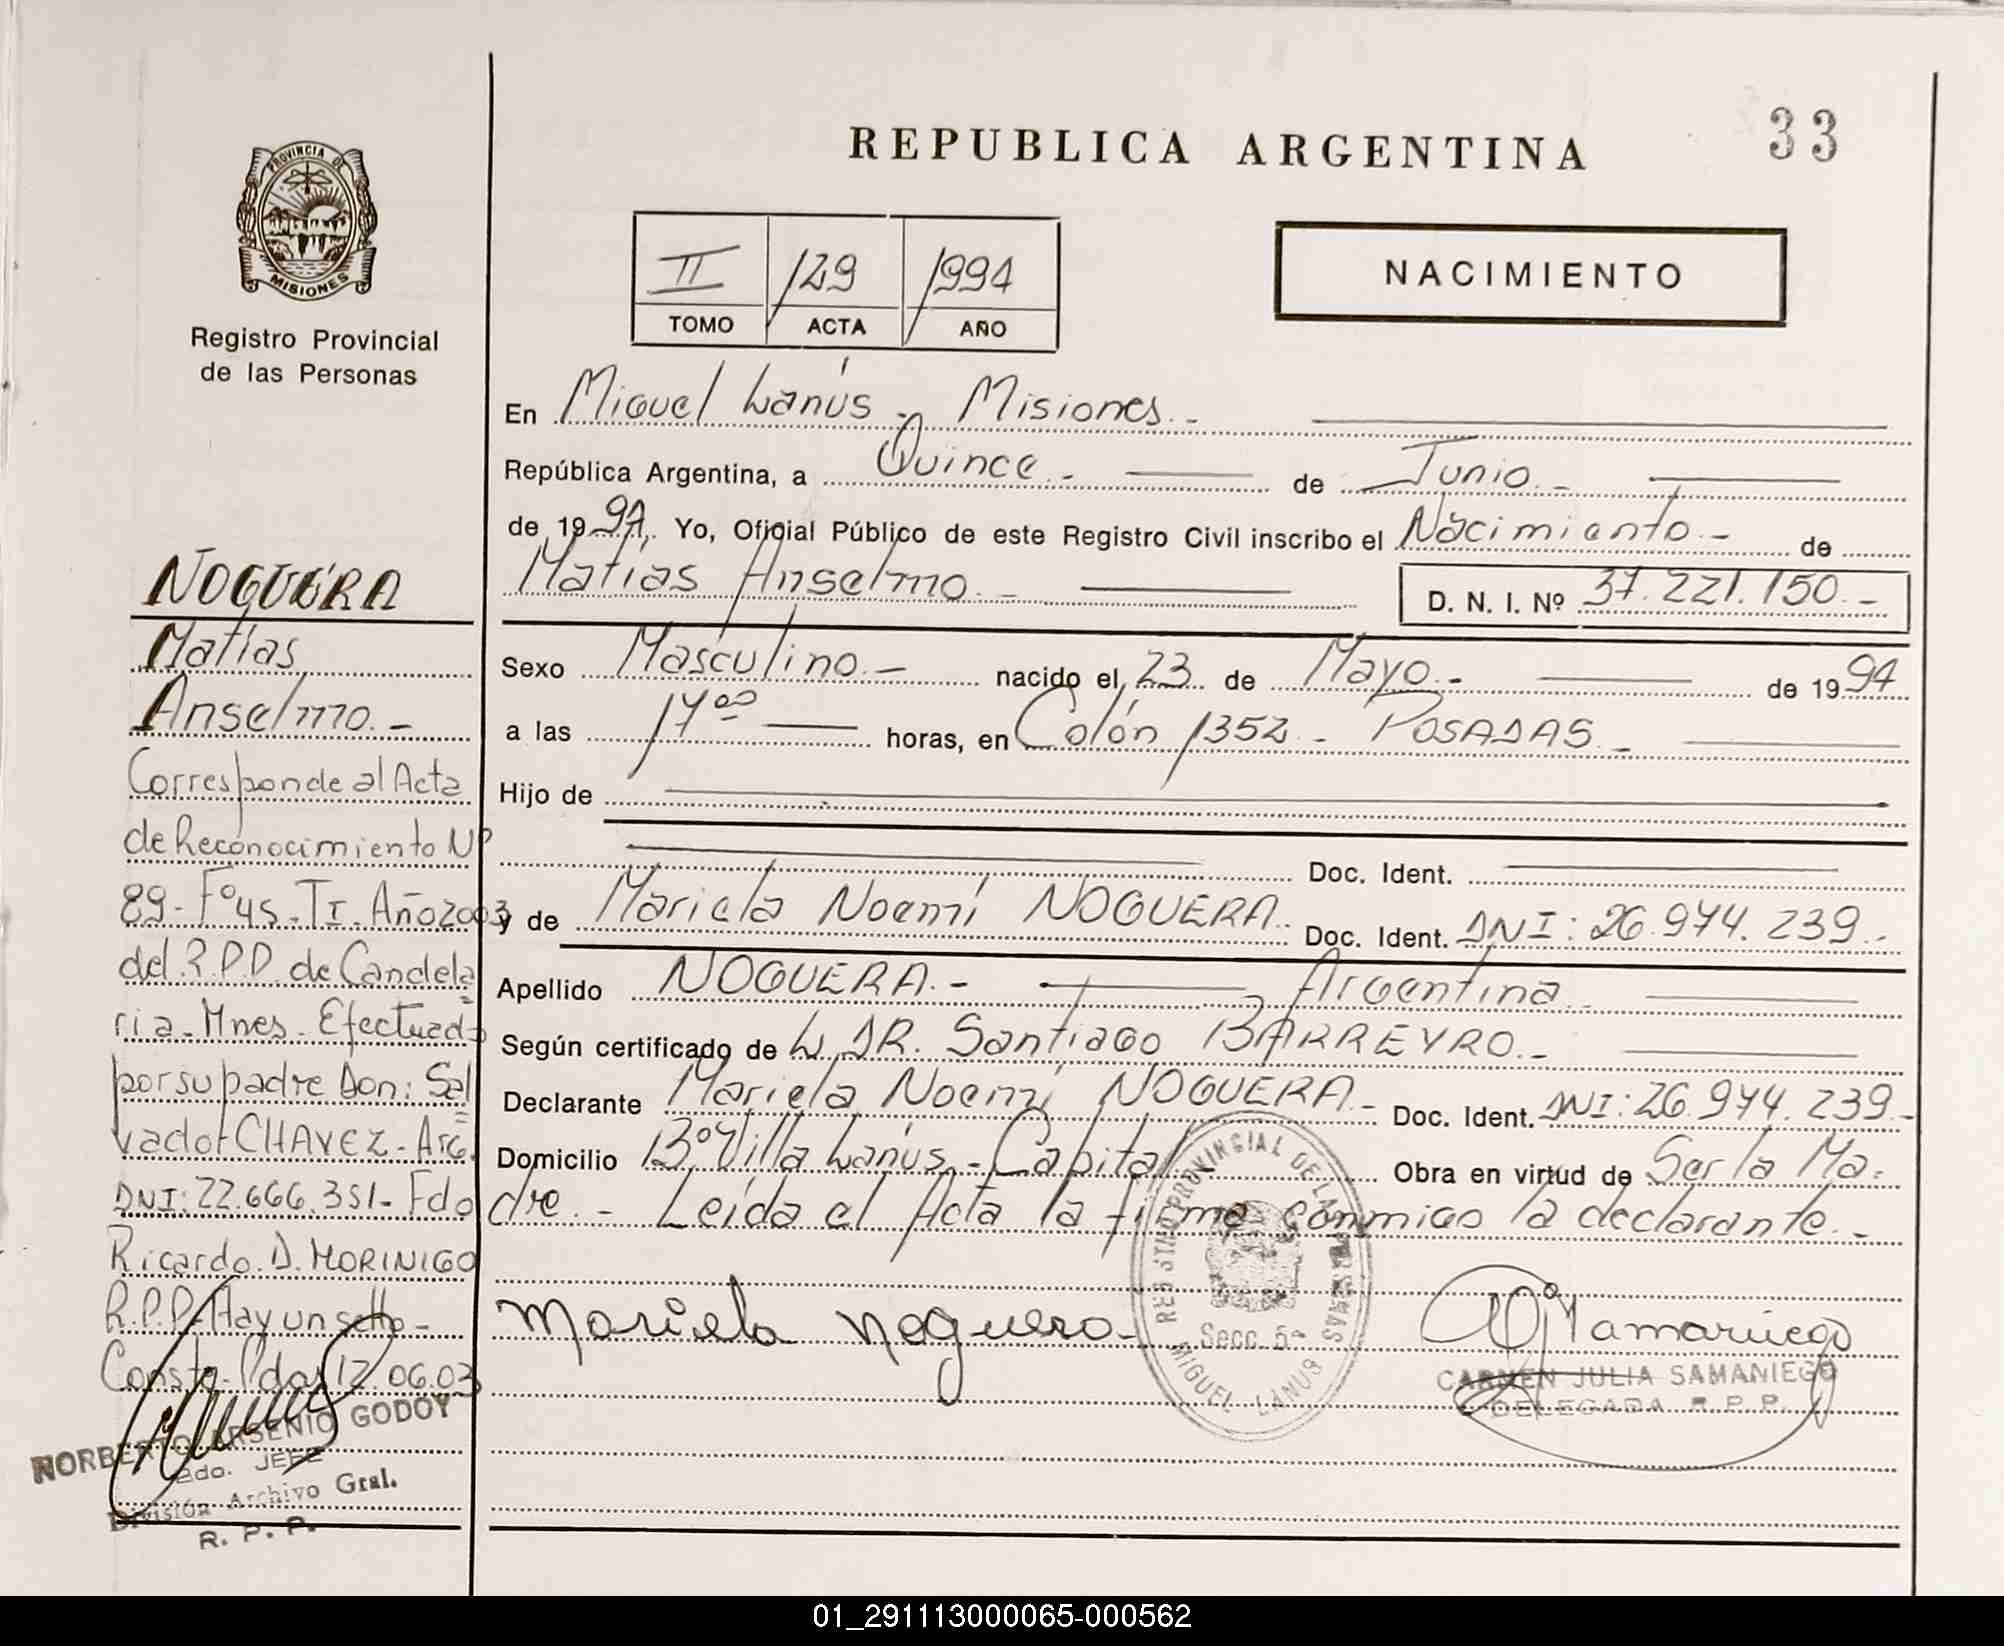 33
REPUBLICA ARGENTINA
PROVINCIA DE
MISIONES
Registro Provincial
de las Personas
II 129 1994
TOMO ACTA AÑO
NACIMIENTO
En Miguel Lanús - Misiones.-
República Argentina, a Quince.- de Junio.-
de 1994. Yo, Oficial Público de este Registro Civil inscribo el Nacimiento.- de
Matias Anselmo.- D. N. I. Nº 37.221.150.-
Sexo Masculino.- nacido el 23 de Mayo.- de 1994
a las 17ºº horas, en Colón 1352 - POSADAS.-
Hijo de
Doc. Ident.
y de Mariela Noemí NOGUERA.- Doc. Ident. DNI: 26.974.239.-
Apellido NOGUERA.- Argentina.-
Según certificado de L. DR. Santiago BARREYRO.-
Declarante Mariela Noemí NOGUERA.- Doc. Ident. DNI: 26.974.239.-
Domicilio Bº Villa Lanús.- Capital.- Obra en virtud de Ser la Ma-
dre.- Leida el Acta la firma conmigo la declarante.-
Mariela Noguera
REGISTRO PROVINCIAL DE LAS PERSONAS
Secc. 5ª
MIGUEL LANUS
CARMEN JULIA SAMANIEGO
DELEGADA R.P.P.
NOGUERA
Matias
Anselmo.-
Corresponde al Acta
de Reconocimiento Nº
89- Fº45- TI. Año2003
del R.P.P. de Candela
ria- Mnes. Efectuado
por su padre Don: Sal
vador CHAVEZ- Arg.
DNI: 22.666.351- Fdo
Ricardo. D. MORINIGO
R.P.P. Hay un sello-
Conste- Pdas 12.06.03
NORBERTO ARSENIO GODOY
2do. JEFE
División Archivo Gral.
R. P. P.
01_291113000065-000562